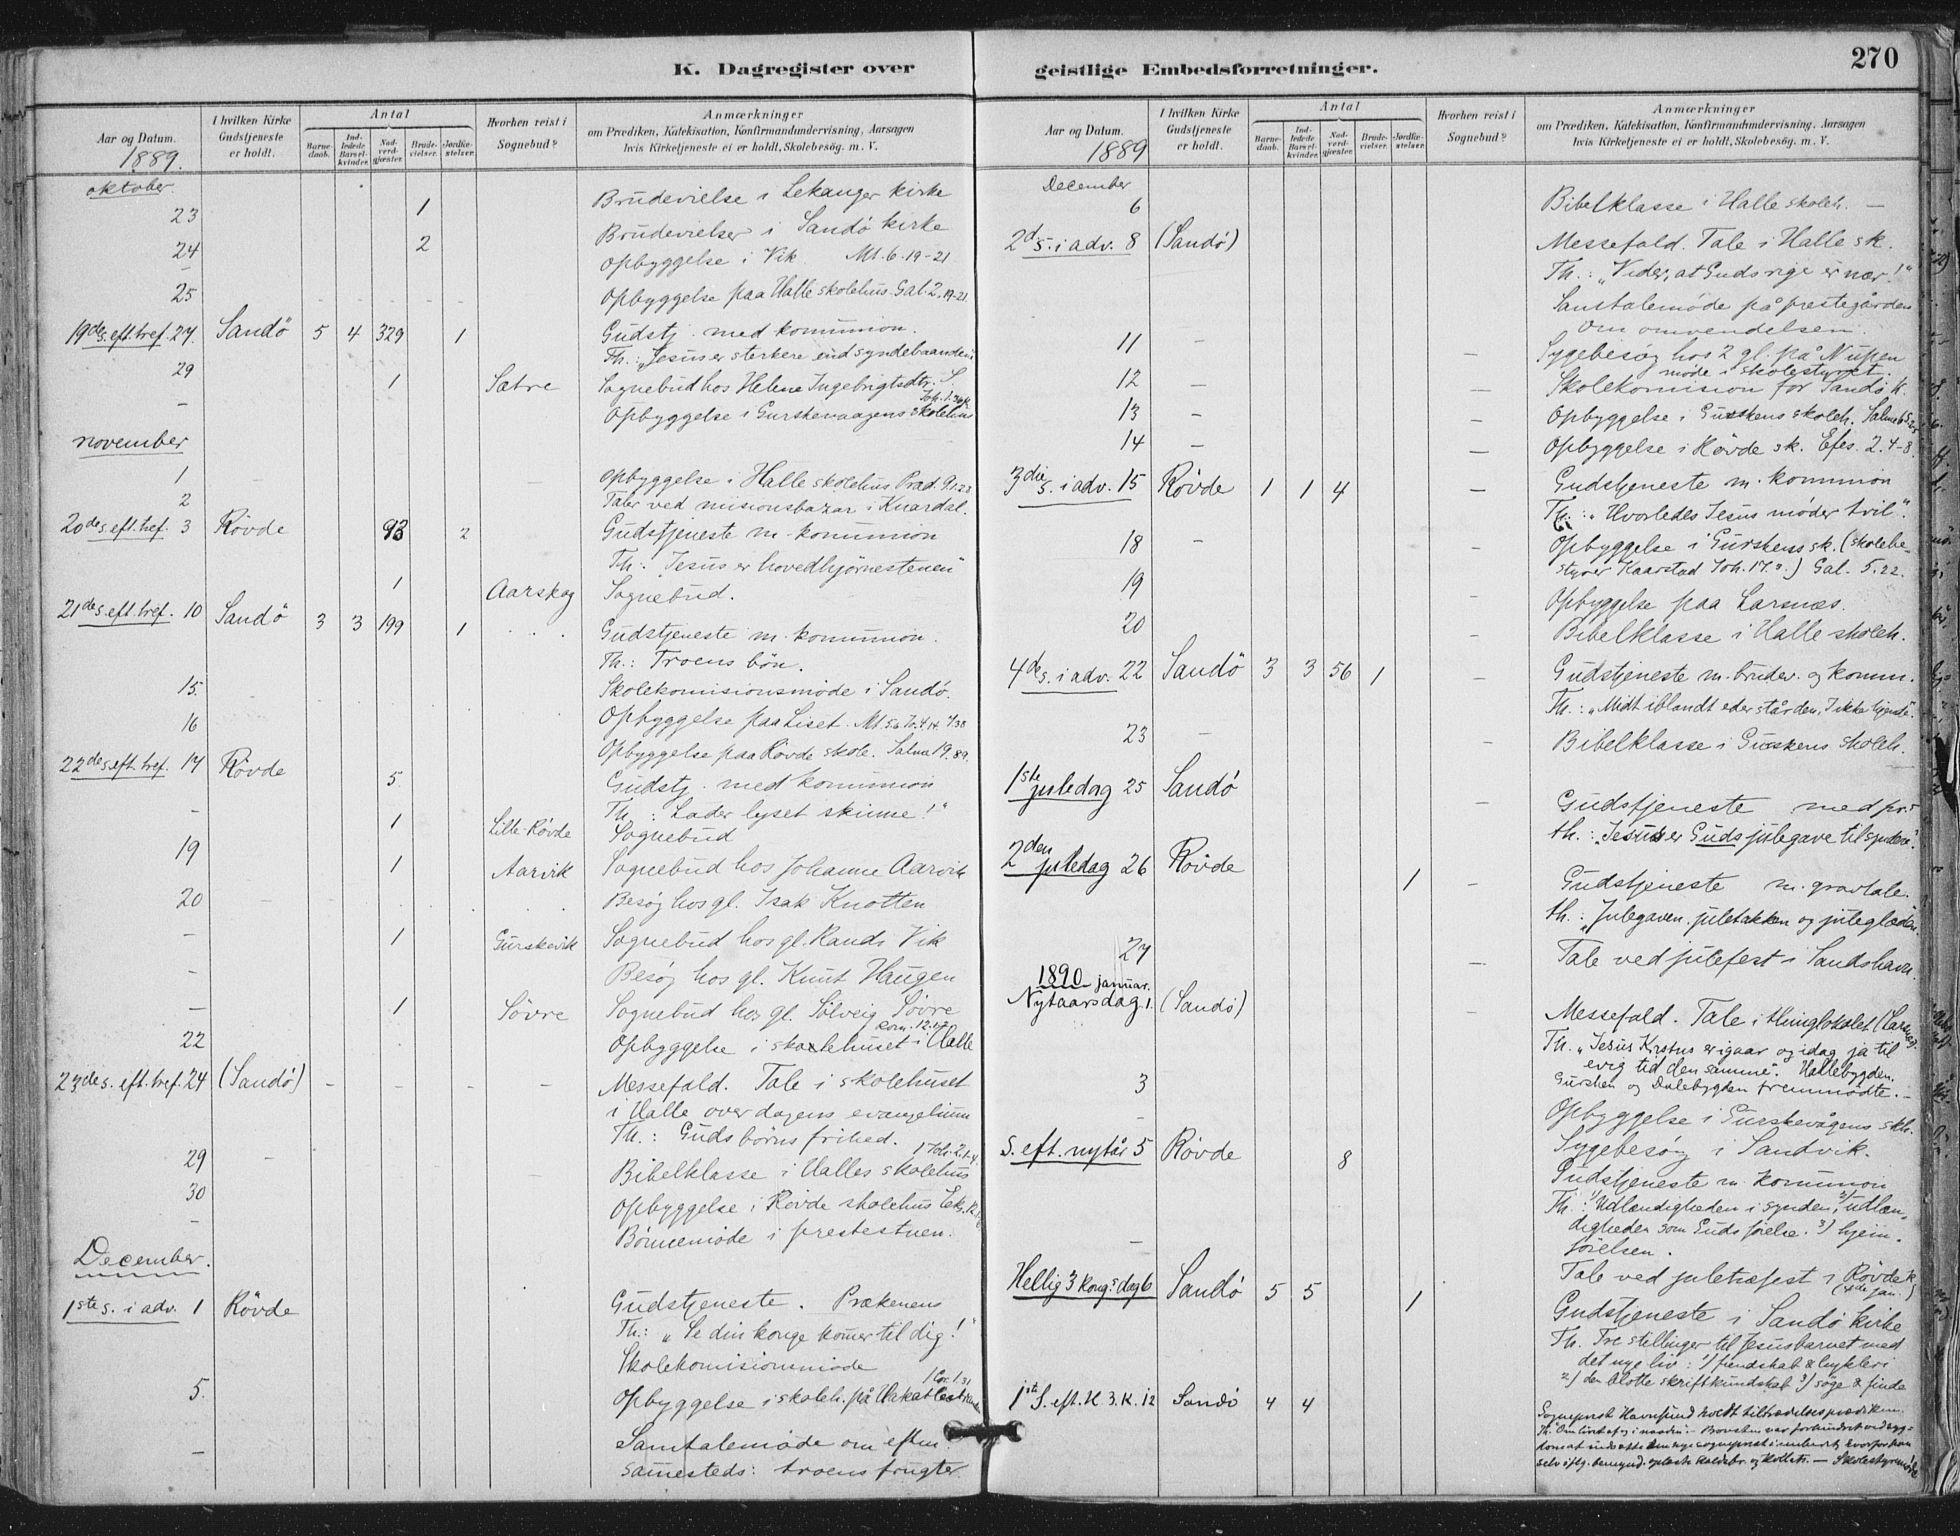 K. Dagregister over
Aar og Datum.
1889.
I hvilken Kirke Gudstjeneste er holdt.
Antal
Barnedaab.
Indledede Barselkvinder.
Nadverdgjester.
Brudevielser.
Jordfæstelser.
Hvorhen reist i Sognebud?
Anmærkninger
om Prædiken, Katekisation, Konfirmandundervisning, Aarsagen
hvis Kirketjeneste ei er holdt, Skolebesög. m. V.
oktober.
23 1 Brudevielse i Lekanger kirke
24 2 Brudevielser i Sandö kirke
- Opbyggelse i Vik Mt. 6. 19-21
25 Opbyggelse paa Halle skolehus. Gal. 2. 19-21.
19de s. eft. tref. 27 Sandö 5 4 329 1 Gudstj. med komunion.
Th.: "Jesus er sterkere end syndebaanden"
29 1 Sætre Sognebud hos Helene Ingebrigtsdtr. S.
- Opbyggelse i Gurskevaagens skolehus
november
1 Opbyggelse i Halle skolehus Præd. 9.
2 Taler ved misionsbazar i Knardal.
20de s. eft. tref. 3 Rövde 93 2 Gudstjeneste m. komunion
Th. "Jesus er hovedhjörnestenen"
1 Aarskog Sognebud.
21de s. eft. tref. 10 Sandö 3 3 199 1 Gudstjeneste m. komunion.
Th.: Troens bön.
15 Skolekomisionsmöde i Sandö.
16 Opbyggelse paa Liset.
Opbyggelse paa Rövde skole. Salme 19.
22de s. eft. tref. 17 Rövde 5 Gudstj. med komunion
Th.: Lader lyset skinne!"
- 1 Lille-Rövde Sognebud
19 1 Aarvik Sognebud hos Johanne Aarvik
20 Besög hos gl. Isak Knotten
- 1 Gurskevik Sognebud hos gl. Rands Vik
- Besög hos gl. Knut Haugen
- 1 Sövre Sognebud hos gl. Sölveig Sövre
Rom. 12.12
22 Opbyggelse i skolehuset i Halle
23de s. eft. tref. 24 (Sandö) - - - - Messefald. Tale i skolehuset
i Halle over dagens evangelium
Th.: Guds börns frihed.
1 Joh. 2.1-4.
29 - Bibelklasse i Halles skolehus
30 Opbyggelse i Rövde skolehus
- Börnemöde i prestestuen.
December.
1ste s. i adv. 1 Rövde Gudstjeneste. Prækenens
Th: "Se din konge komer til dig!"
Skolekomisionsmöde
1 Cor. 1.31
5. Opbyggelse i skoleh. på Hakallestranden
- Samtalemöde om eftm.
samesteds: troens frugter.
geistlige Embedsforretninger.
270
Aar og Datum.
1889
I hvilken Kirke Gudstjeneste er holdt.
Antal
Barnedaab.
Indledede Barselkvinder.
Nadverdgjester.
Brudevielser.
Jordfæstelser.
Hvorhen reist i Sognebud?
Anmærkninger
om Prædiken, Katekisation, Konfirmandundervisning, Aarsagen
hvis Kirketjeneste ei er holdt, Skolebesög. m. V.
December
6 Bibelklasse i Halle skoleh. -
2d s. i adv. 8 (Sandö) Messefald. Tale i Halle sk.
Th.: "Vider, at Guds rige er nær!"
Samtalemöde på prestegården
om omvendelsen.
11 - - Sygebesög hos 2 gl. på Nupen
möde i skolestyret.
12 - Skolekomision for Sandö k.
13 - - Opbyggelse i Gurskens skoleh. Salme
14 - - Opbyggelse i Rövde sk. Efes. 2. 4-8.
3die s. i adv. 15 Rövde 1 1 4 - Gudstjeneste m. komunion
Th.: "Hvorledes Jesus möder tvil".
18 - - Opbyggelse i Gurskens sk. (skolebe-
styrer Kaarstad Joh. 17.) Gal. 5.22.
19 - Opbyggelse paa Larsnæs.
20 - Bibelklasse i Halle skoleh.
4de s. i adv. 22 Sandö 3 3 56 1 - Gudstjeneste m. brudev. og komm.
Th.: "Midt iblandt eder står den, I ikke kjende".
23 - - Bibelklasse i Gurskens skoleh.
1ste juledag 25 Sandö - Gudstjeneste med
th.: "Jesus er Guds julegave til syndere"
2den juledag 26 Rövde 1 - Gudstjeneste m. gravtale.
th.: "Julegaven, juletakken og juleglæden
27 - Tale ved julefest i Sandshavn.
1890 januar.
Nytaarsdag 1. (Sandö) Messefald. Tale i thinglokalet (Larsnes).
Th. "Jesus Kristus er igaar og idag ja til
evig tid den samme". Hallebygden,
Gursken og Dalebygden fremmödte. -
3 Opbyggelse i Gurskevågens skh.
- Sygebesög i Sandvik.
S. eft. nytår 5 Rövde 8 Gudstjeneste m. komunion
Th.: 1) Udlændigheden i synden, 2) utlæn-
digheden som Guds förelse. 3) hjem-
förelsen.
- Tale ved juletræfest i Rövde k.
(4de jan.)
Hellig 3 kong.s dag 6 Sandö 5 5 1 Gudstjeneste i Sandö kirke
Th. Tre stillinger til Jesusbarnet med
det nye liv: 1) fiendskab & hykleri
2) den blotte skriftkundskab 3) söge & finde
1ste S. eft. H. 3. K. 12 Sandö 4 4 Sogneprest Havnsund holdt tiltrædelsesprædiken.
- Skolestyremöde